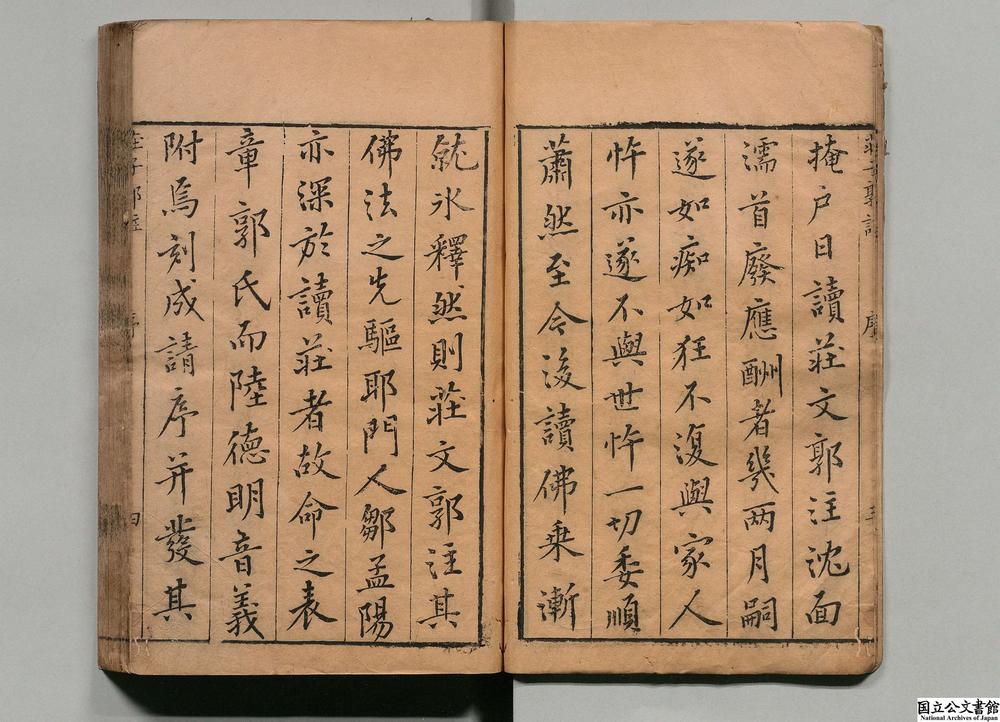 莊子郭註 序 三
掩户日讀莊文郭注沈面
濡首廢應酬者幾两月嗣
遂如痴如狂不復與家人
忤亦遂不與世忤一切委順
蕭然至今後讀佛乗漸
就氷釋然則莊文郭注其
佛法之先驅耶門人鄒孟陽
亦深於讀莊者故命之表
章郭氏而陸德明音義
附焉刻成請序并發其
莊子郭註 序 四
国立公文書館
National Archives of Japan